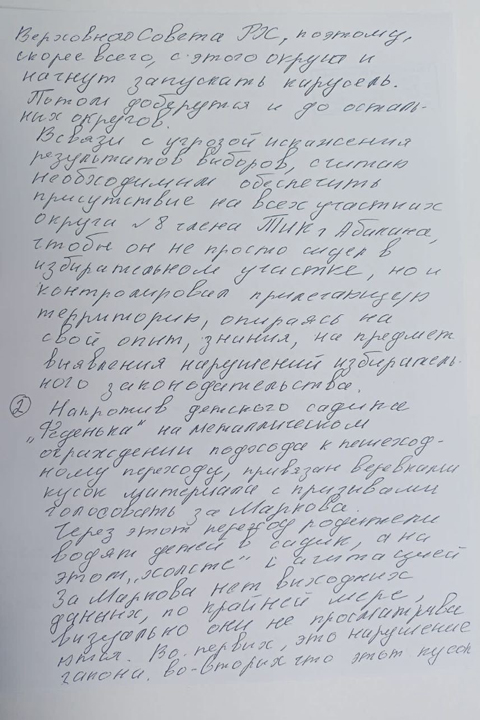 Верховного Совета РХ, поэтому,
скорее всего, с этого округа и
начнут запускать карусель.
Потом доберутся и до осталь-
них округов.
В связи с угрозой искажения
результатов виборов, считаю
необходимим обеспечить
присутствие на всех участках
округа №8 члена ТИК г Абакана,
чтобы он не просто сидел в
избирательном участке, но и
контролировал прилегающую
территорию, опираясь на
свой опит, знания, на предмет
виявления нарушений избиратель-
ного законодательства.
② Напротив детского садика
"Феденька" на металлическом
ограждении подхода к пешеход-
ному переходу, привязан веревками
кусок материала с призывами
голосовать за Маркова.
Через этот переход родители
водят детей в садик, а на
этом "холсте" с агитацией
за Маркова нет виходних
данних, по крайней мере,
визуально они не просматрива
ются. Во первих, это нарушение
закона. во-вторих что этот кусок